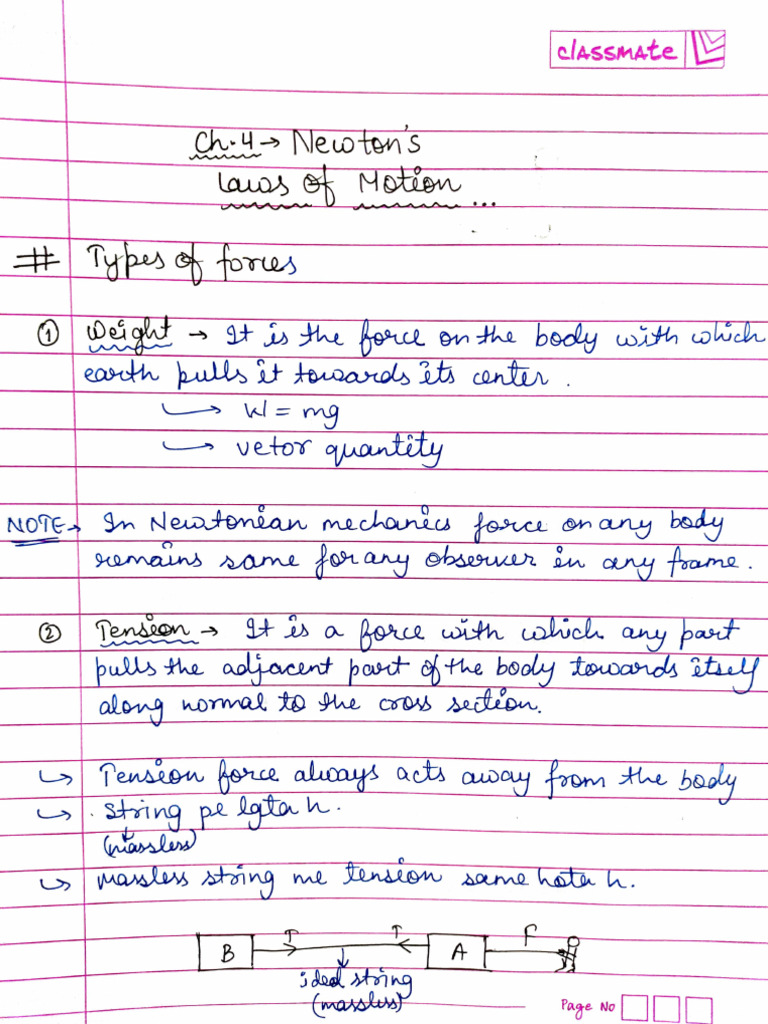 classmate
Ch.4 → Newton's
Laws of Motion ...
# Types of forces
① Weight → It is the force on the body with which
earth pulls it towards its center.
↳ W = mg
↳ vetor quantity
NOTE → In Newtonian mechanics force on any body
remains same for any observer in any frame.
② Tension → It is a force with which any part
pulls the adjacent part of the body towards itself
along normal to the cross section.
↳ Tension force always acts away from the body
↳ String pe lgta h.
(massless)
↳ massless string me tension same hota h.
B T T A F
ideal string
(massless)
Page No